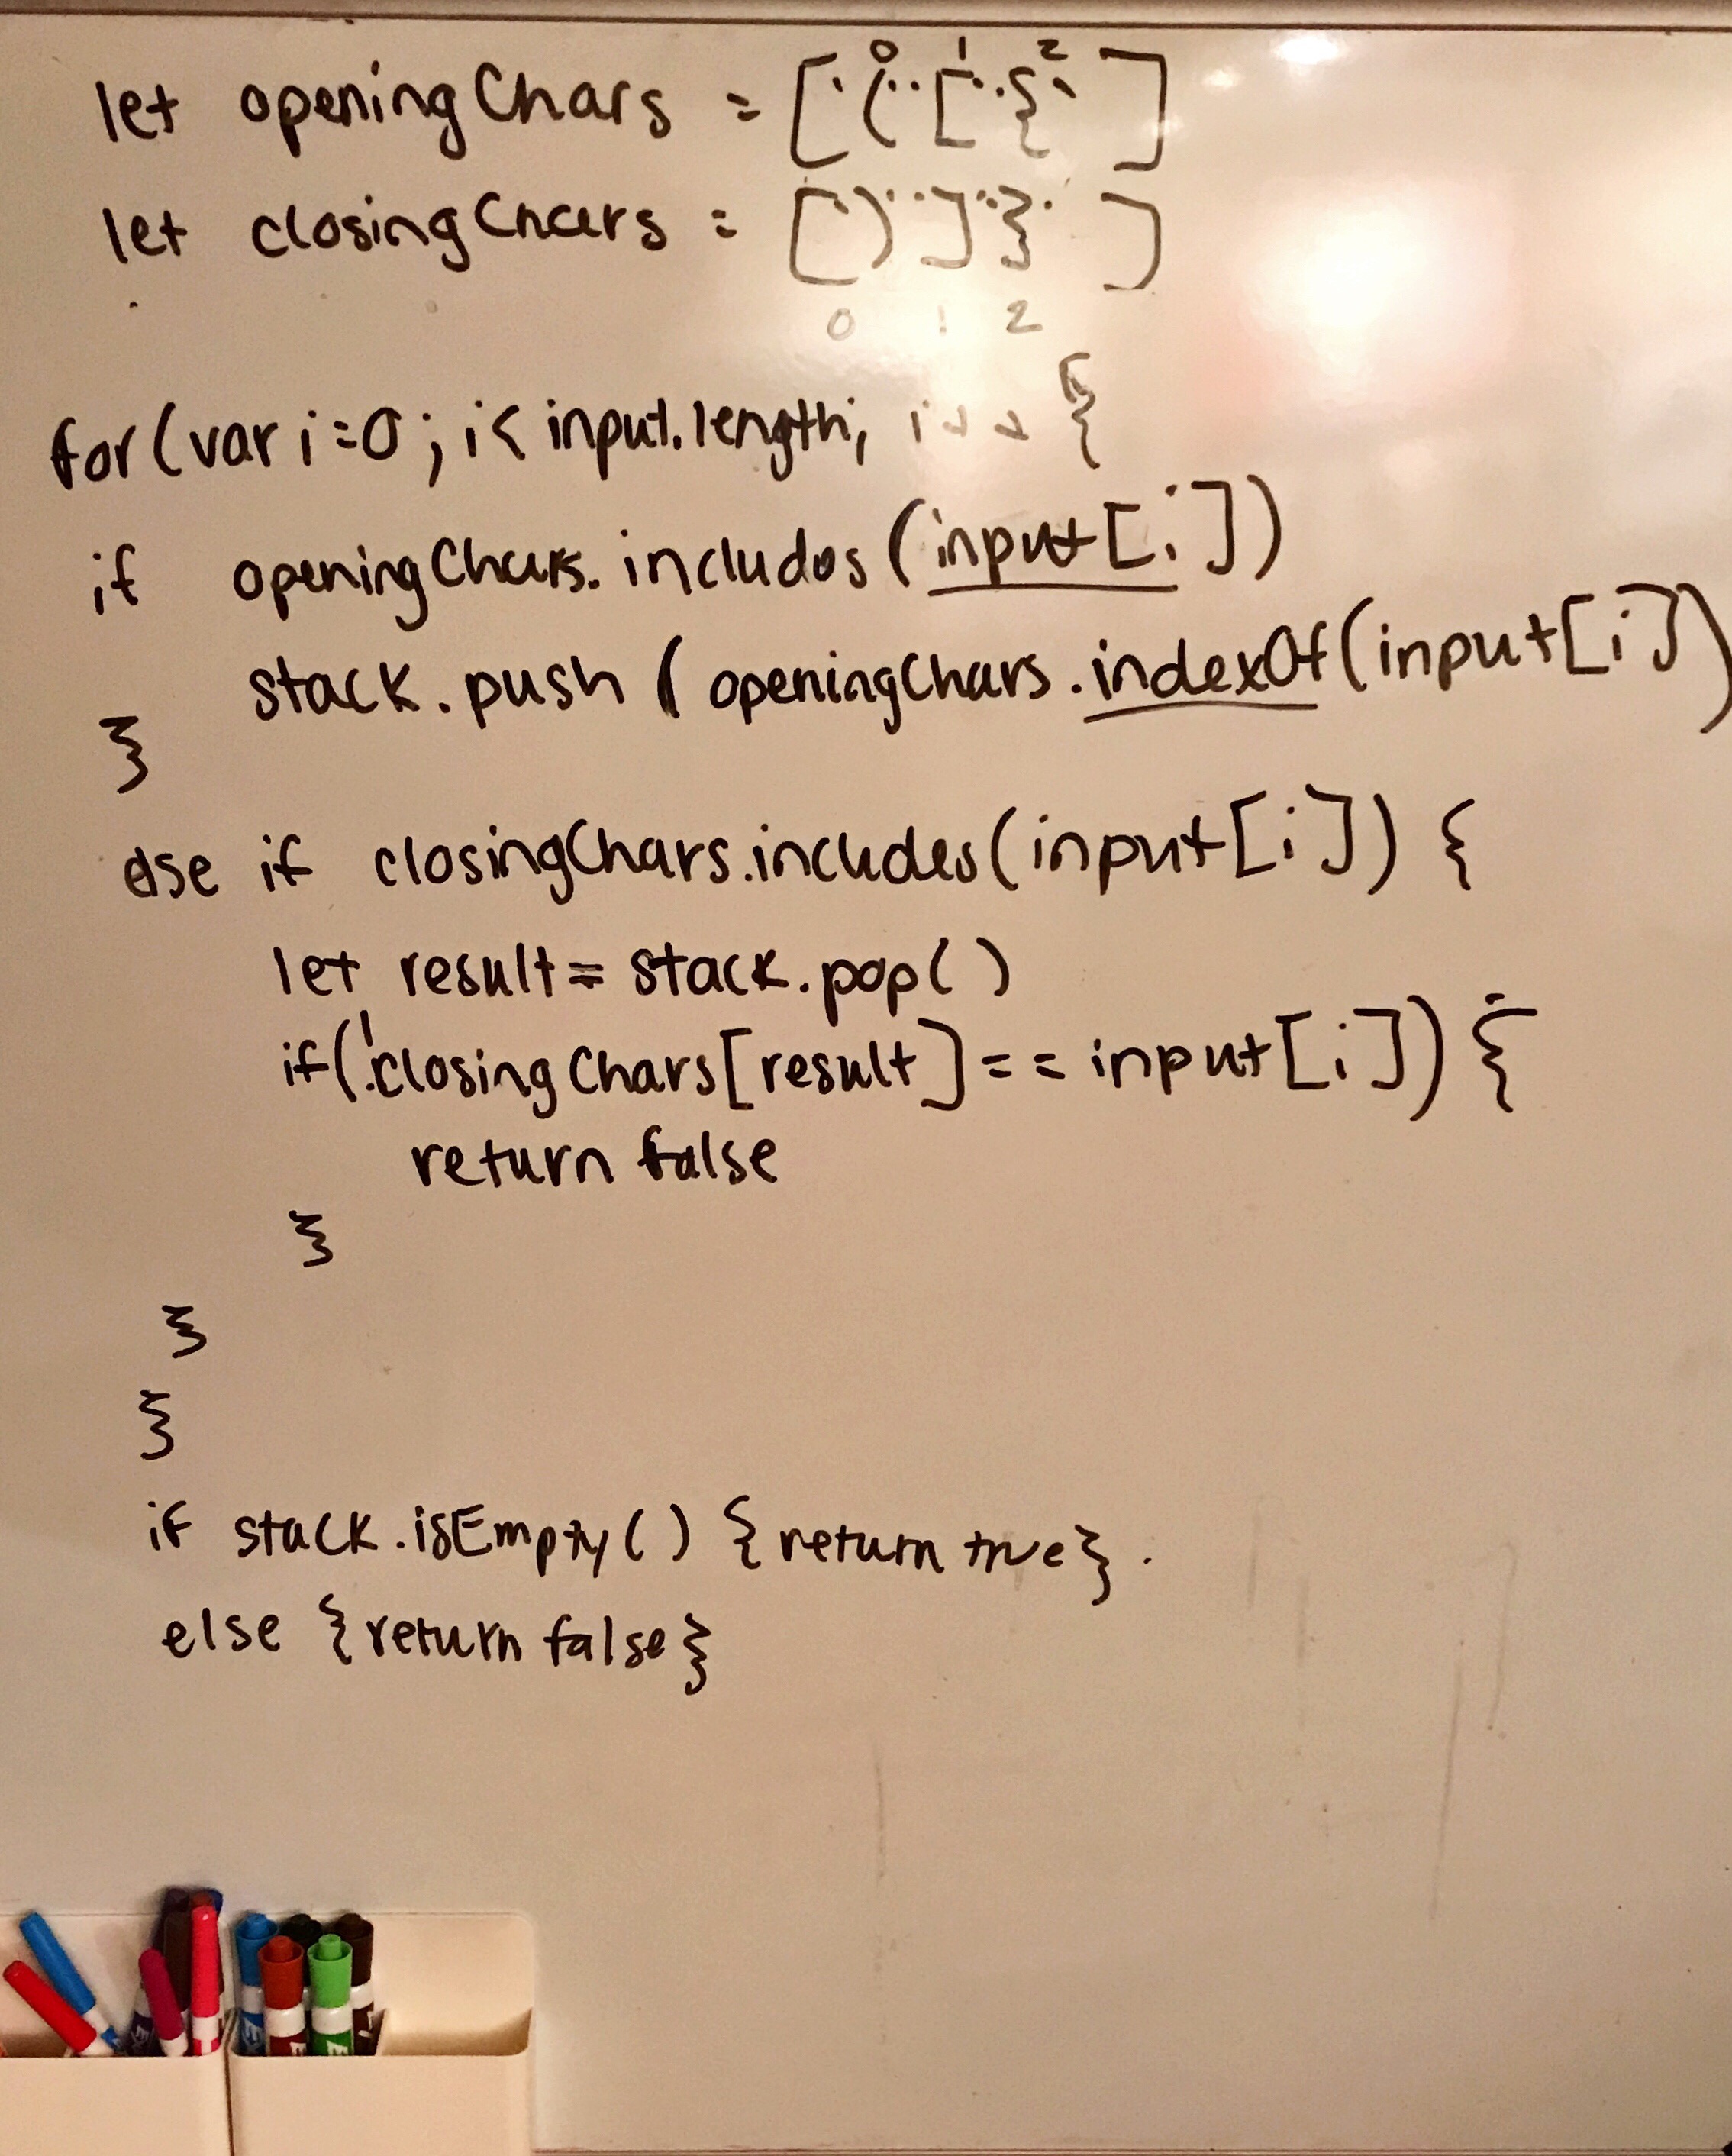 0 1 2
let openingChars = ['(' '[' '{' ]
let closingChars = [')' ']' '}' ]
0 1 2
for(var i=0; i< input.length; i++ {
if openingChars.includes(input[i])
stack.push(openingChars.indexOf(input[i])
}
else if closingChars.includes(input[i]) {
let result = stack.pop()
if(!closingChars[result] == input[i]) {
return false
}
}
}
if stack.isEmpty() {return true}.
else {return false}